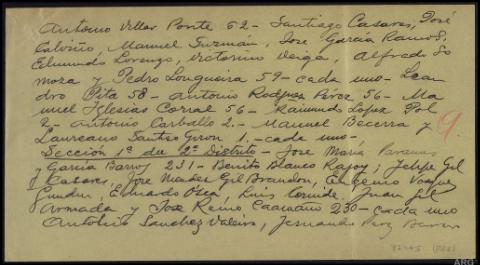 Antonio Villar Ponte 62 - Santiago Casares, José
Calviño, Manuel Guzmán, José García Ramos,
Edmundo Lorenzo, Victorino Veiga, Alfredo So
moza y Pedro Longueira 59 - cada uno - Lean
dro Pita 58 - Antonio Rodguez Pérez 56 - Ma
nuel Iglesias Corral 56 - Raimundo Lopez Pol
2 - Antonio Carballo 2. - Manuel Becerra y
Laureano Santiso Giron 1. - cada uno -
Sección 1ª du 2º Distrito - José María
y García Barros 231 - Benito Blanco Rajoy, Felipe Gil
Casares, José Mader Gil Brandon, Eugenio Vazquez
Gundin, Eduardo Ozea, Luis Cornide. Juan Gil
Armada y José Reino Caamaño 230 - cada uno
Antonio Sanchez Valeiro, Fernando Perez Barreiro
9.
ARG